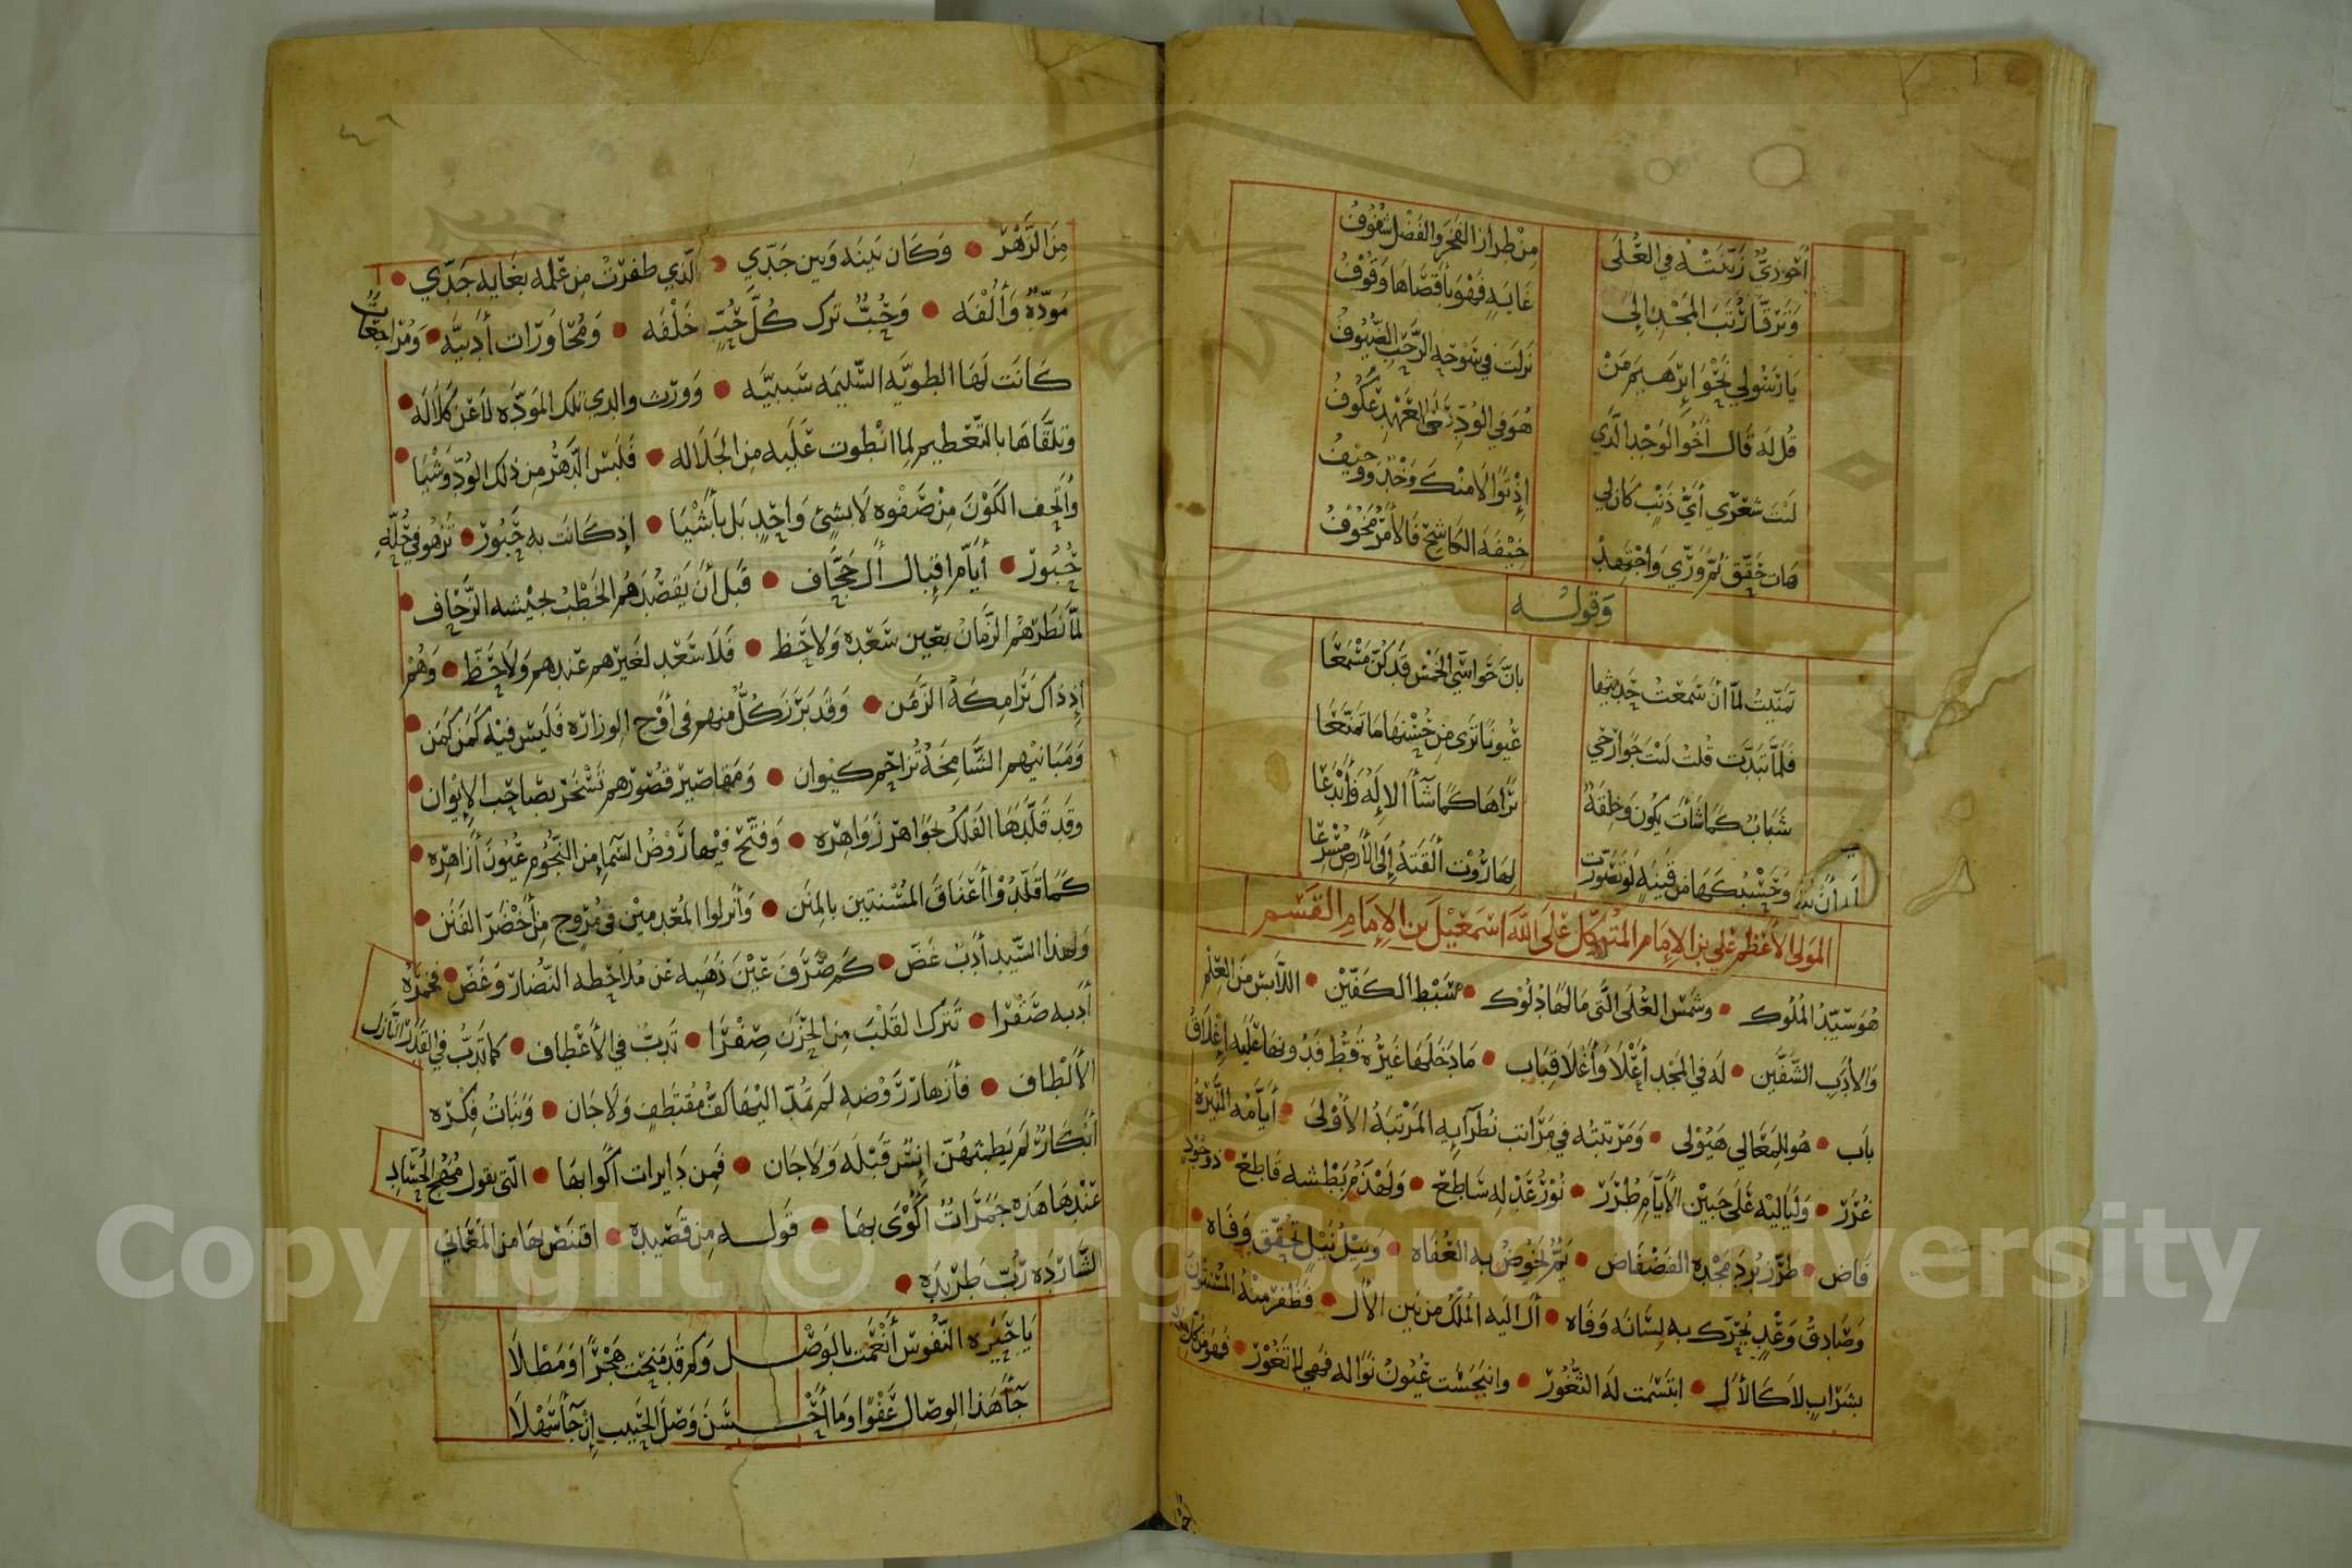 أحوذيٌّ زَيَّنَتْهُ في العُلَى من طراز الفخر والفضل شفوفُ
وَترقَّا رُتَبَ المَجْدِ إلى غايةٍ فهو بأقصاها وقوفُ
يا رسولي نحو إبرهيم من نزلت في سوحه الرحب الضيوفُ
قل له قال أخو الوجد الذي هو في الود على العهد عكوفُ
ليت شعري أي ذنب كان لي إذ توالا منك وخد ووجيفُ
هات حقق ثم وري واجتهد خيفة الكاشح فالأمر مخوفُ
وقوله
تمنيت لما أن سمعت حديثها بأن حواسي الخمس قد كن مسمعا
فلما تبدت قلت ليت جوارحي عيونا ترى من حسنها ما تمتعا
شباب كما شأت يكون وخلقة تراها كما شآ الإله وأبدعا
وحسبك ها من قينة لو تصورت لها روت ألقته إلى الأرض مسرعا
المولى الأعظم علي بن الإمام المتوكل على الله اسمعيل بن الإمام القسم
هو سيد الملوك • وشمس العلى التي مالها دلوك • سبط الكفين • اللابس من العلم
والأدب الشفين • له في المجد أعلا وأغلا قباب • ما دخلها غيره قط فدونها عليه إغلاق
باب • هو للمعالي هيولى • ومرتبته في مراتب نظرآيه المرتبة الأولى • أيامه النيره
غرر • ولياليه على جبين الأيام طرر • نور عدله ساطع • ولهذم بطشه قاطع • ذو جود
فاض • طرز برد مجده الفضفاض • يم يخوض به العفاه • وسيل نيل تحقق وفاه •
وصادق وعد يحرك به لسانه وفاه • أل اليه الملك من بين الأل • فظفر منه المسترن
بشراب لا كالأل • ابتسمت له الثغور • وانبجست عيون نواله فهي لا تغور • فهو
٤٦
من الزهر • وكان بينه وبين جدي • الذي ظفرت من علمه بغايه جدي •
مودة وألفه • وحب ترك كل حب خلفه • ومحاورات أدبيه • ومراجعات
كانت لها الطويه السليمه سببيه • وورث والدي تلك المودّه لا عن كلاله •
وتلقاها بالتعظيم لما انطوت عليه من الجلاله • فلبس الدهر من ذلك الود وشيا •
وأتحف الكون من صفوه لا بشيء واحد بل بأشيا • إذ كانت به حبور • تزهو في حلة
حبور • أيام إقبال أل جحاف • قبل أن يقصدهم الخطب بجيشه الزحاف •
لما نظرهم الزمان بعين سعده ولاحظ • فلا سعد لغيرهم عندهم ولا حظ • وهم
إذ ذاك برامكة الزمن • وقد برز كل منهم في أوج الوزاره فليس فيه كمن كمن •
ومبانيهم الشامخة تزاحم كيوان • ومقاصير قصورهم تسخر بصاحب الإيوان •
وقد قلدها الفلك بجواهر زواهره • وفتح فيها روض السمآء من النجوم عيون أزاهره •
كما قلدوا أعناق المسنتين بالمنن • وأنزلوا المعدمين في مروج من أخضر الفنن •
ولهذا السيد أدب غض • كم صرف عين ذهبه عن ملاحظه النضار وغض • فخمرة
أدبه صفرا • تترك القلب من الحزن صفرا • تدب في الأعطاف • كما تدب في القدر النازل
الألطاف • فأزهار روضه لم تمد اليها كف مقتطف ولا جان • وبنات فكره
أبكار لم يطمثهن إنس قبله ولا جان • فمن دايرات أكوابها • التي يقول مهج الحساد
عندها هذه جمرات أكوى بها • قوله من قصيدة • اقتنص بها من المعاني
الشارده رب طريده •
يا حيره النفوس أنعمت بالوصل وكم قد منحت هجرا ومطالا
جآ هذا الوصال عفوا وما أحسن وصل الحبيب إن جآ سهلا